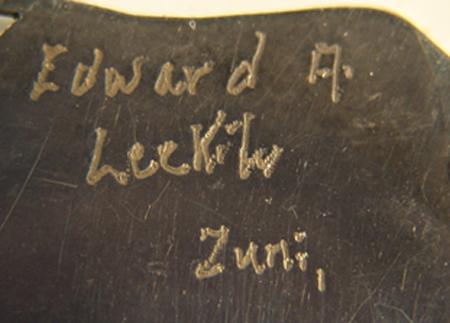 Edward A.
Leekity
Zuni,